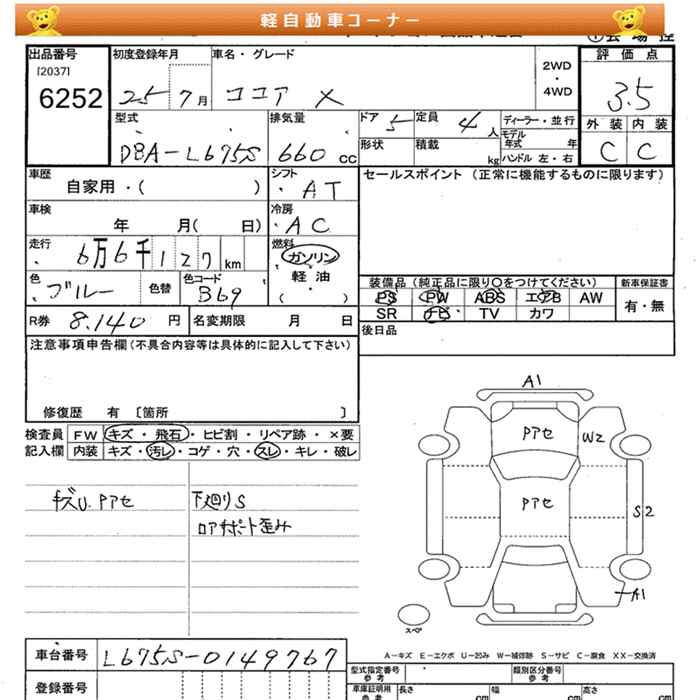 軽自動車コーナー
出品番号 初度登録年月 車名・グレード 評価点
[2037]
6252 25 7月 ココア X 2WD・4WD 3.5
型式 排気量 ドア 5 定員 4人 ディーラー・並行 外装 内装
DBA-L675S 660cc 形状 積載 kg モデル年式 年 ハンドル 左・右 C C
車歴 シフト セールスポイント (正常に機能するものに限ります)
自家用・( ) ・AT
車検 冷房
年 月( 日) ・AC
走行 燃料
6万6千127km ガソリン
軽・油
( )
色 色替 色コード 装備品(純正品に限り○をつけてください) 新車保証書
・ブルー B69 PS PW ABS エアB AW 有・無
R券 8.140円 名変期限 月 日 SR ナビ TV カワ
後日品
注意事項申告欄(不具合内容等は具体的に記入して下さい)
修復歴 有 〔箇所 〕
検査員 FW キズ・飛石・ヒビ割・リペア跡・×要
記入欄 内装 キズ・汚レ・コゲ・穴・スレ・キレ・破レ
キズU.Pアセ 下廻りS
ロアサポート歪み
A1
Pアセ W2
Pアセ
S2
A1
スペア
A-キズ E-エクボ U-凹み W-補修跡 S-サビ C-腐食 XX-交換済
車台番号 L675S-0149767
型式指定番号 参考 類別区分番号 参考
登録番号 車庫証明用 参考 長さ cm 幅 cm 高さ cm